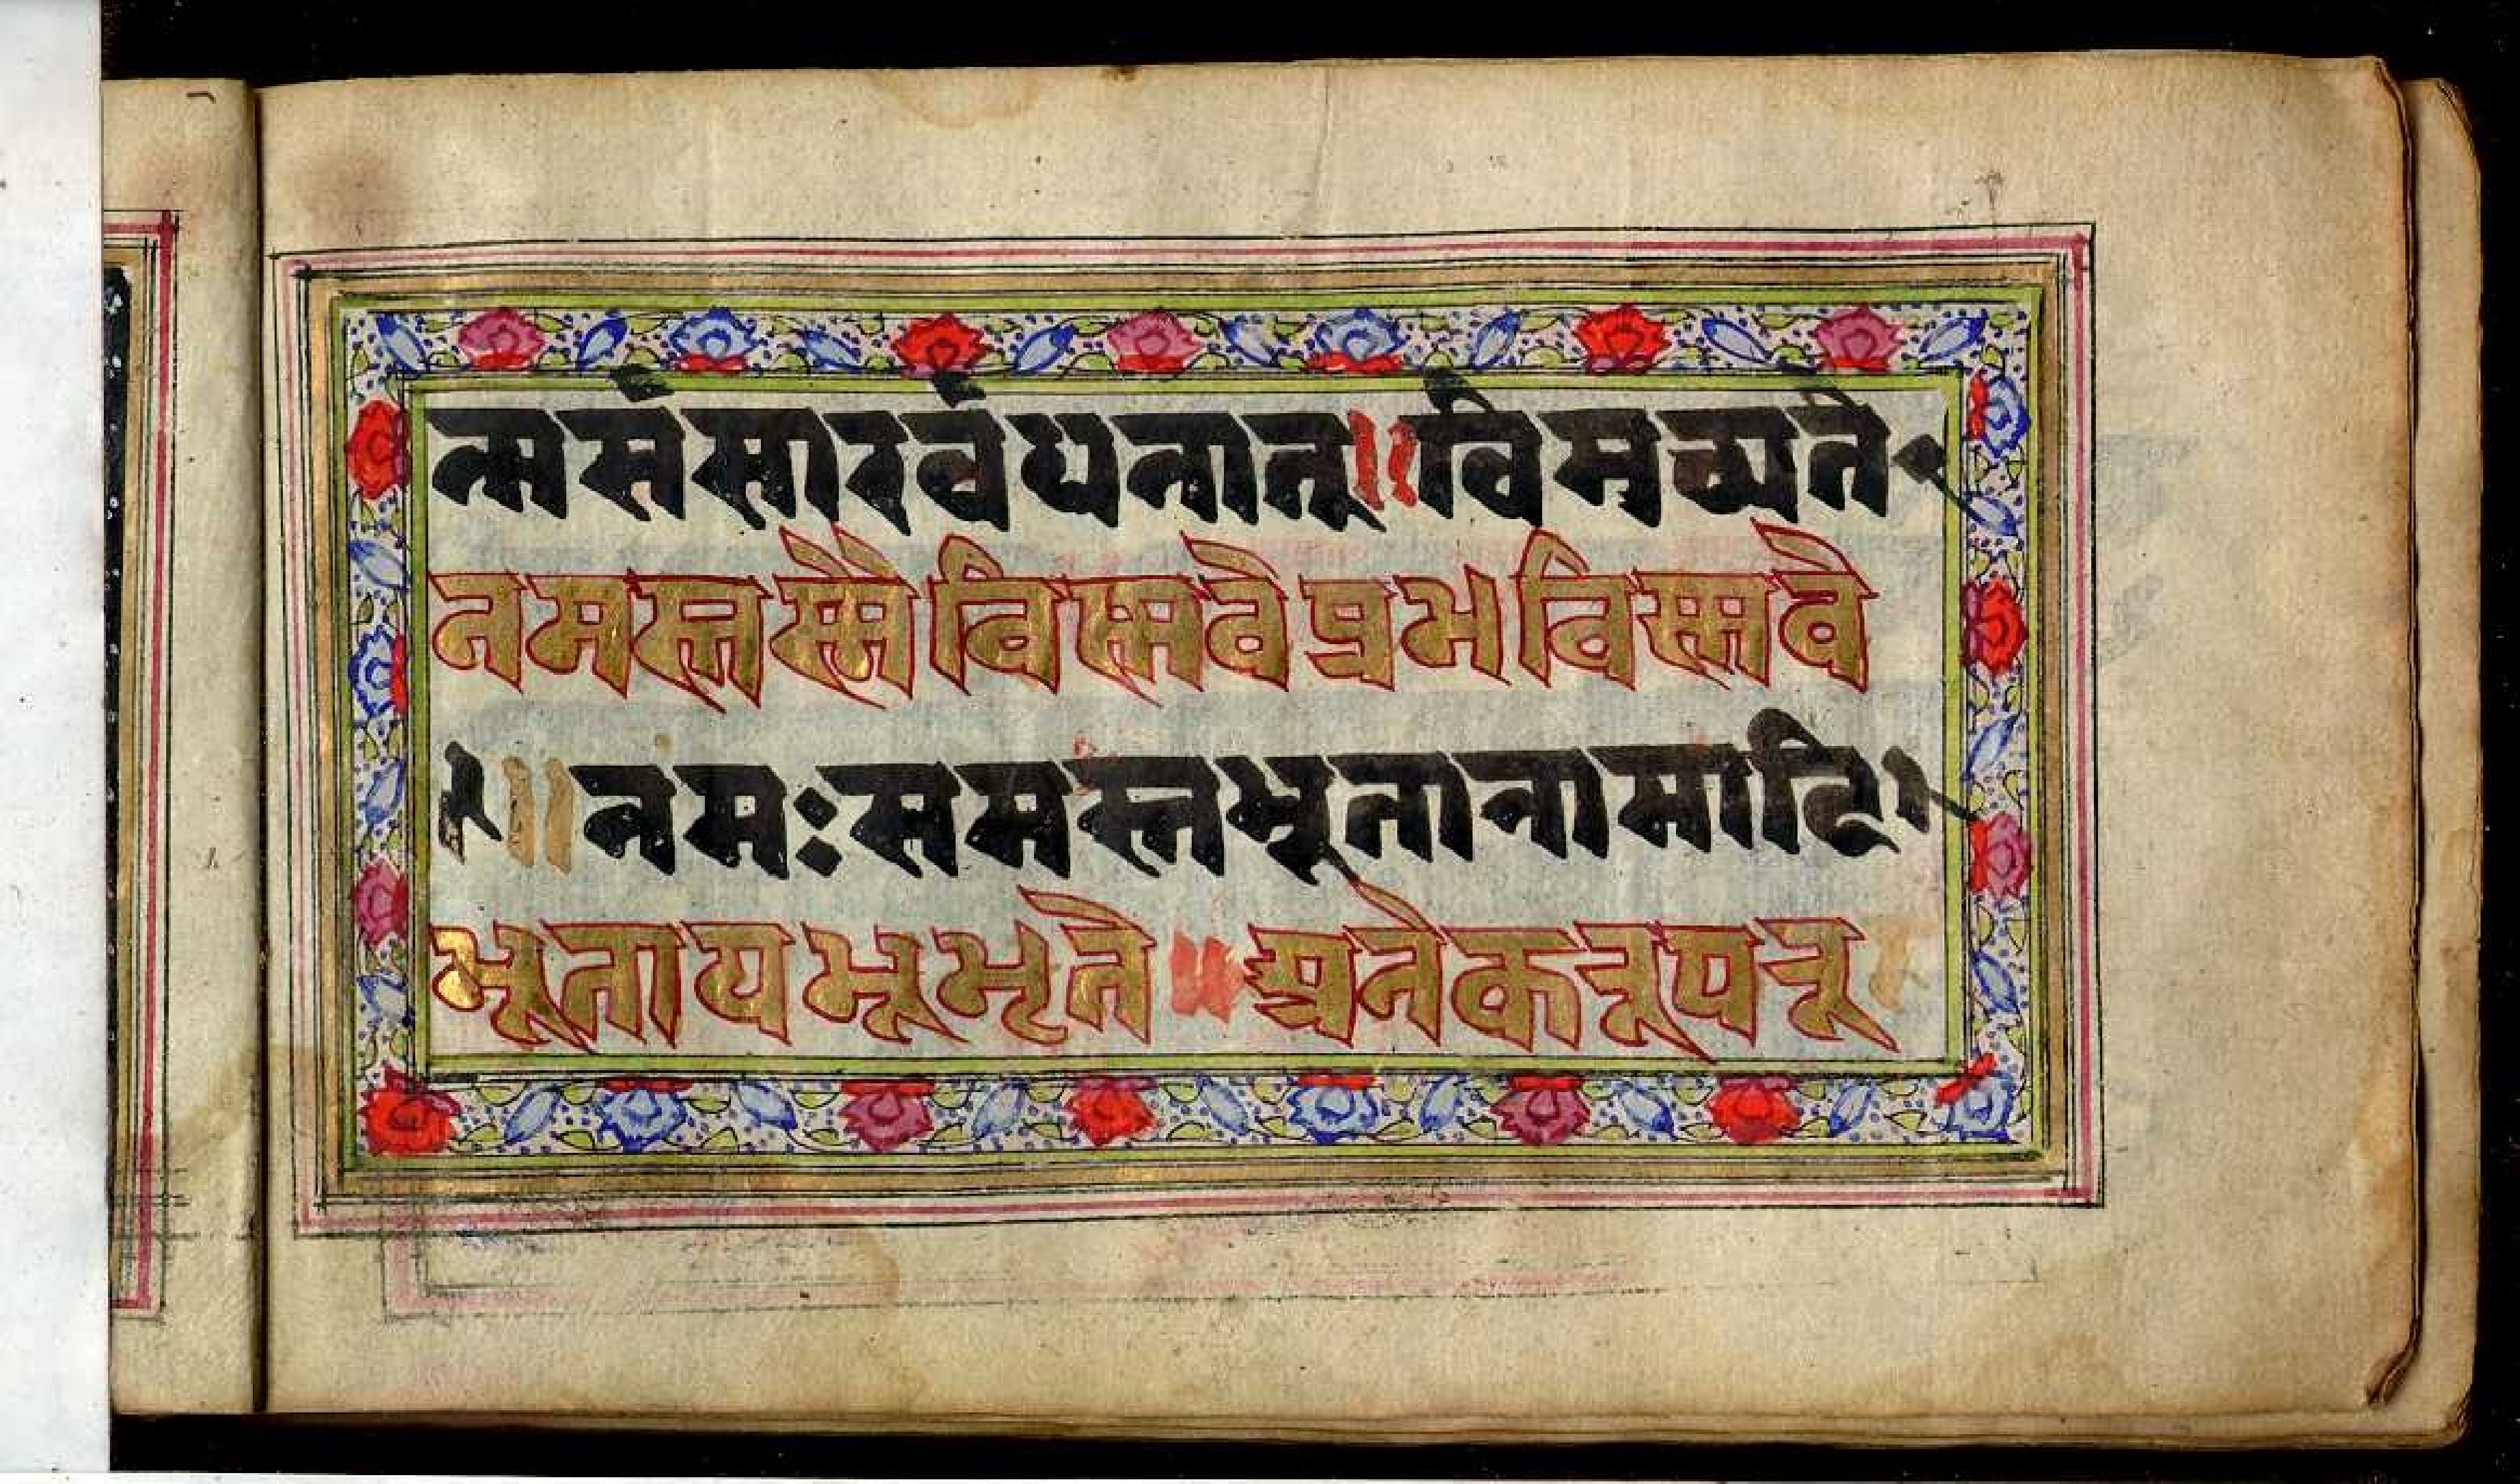 न्मसंसारबंधनात्॥विमच्यते
नमस्तस्मै विस्नवे प्रभविस्नवे
१॥नमःसमस्तभूतानामादि
भूताय भूभृते॥अनेकरूपरू